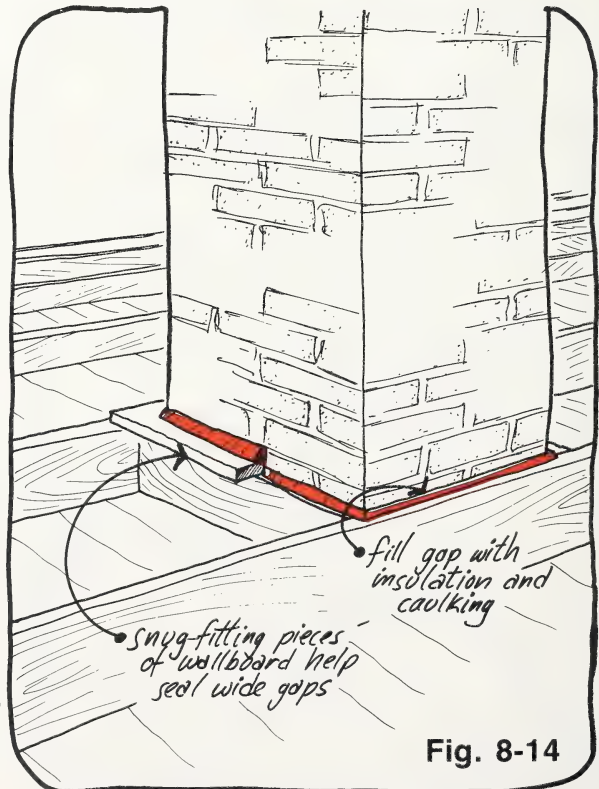 fill gap with
insulation and
caulking
snug-fitting pieces
of wallboard help
seal wide gaps
Fig. 8-14